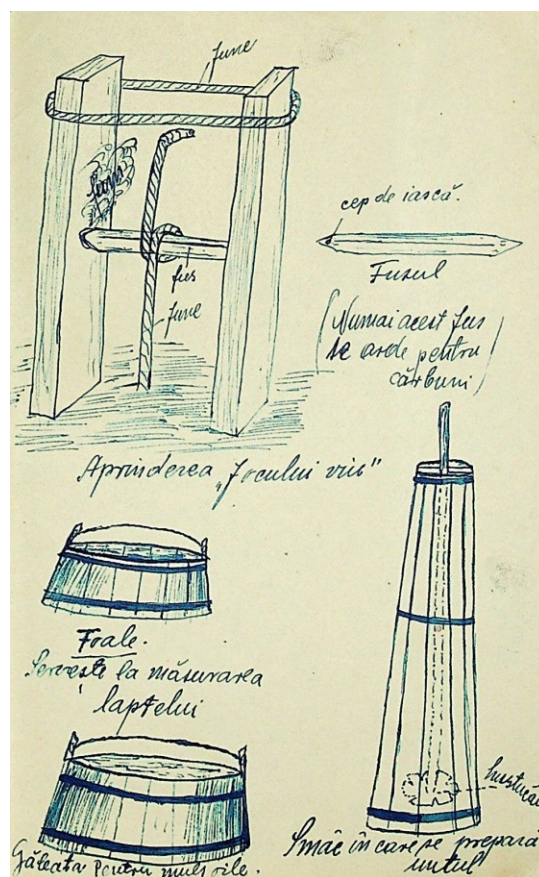 fune
fum
fus
fune
cep de iască.
Fusul
(Numai acest fus
se arde pentru
cărbuni)
Aprinderea „focului viu"
Foale.
Servește la măsurarea
laptelui
Găleata pentru muls oile.
Smâc în care se prepară
untul